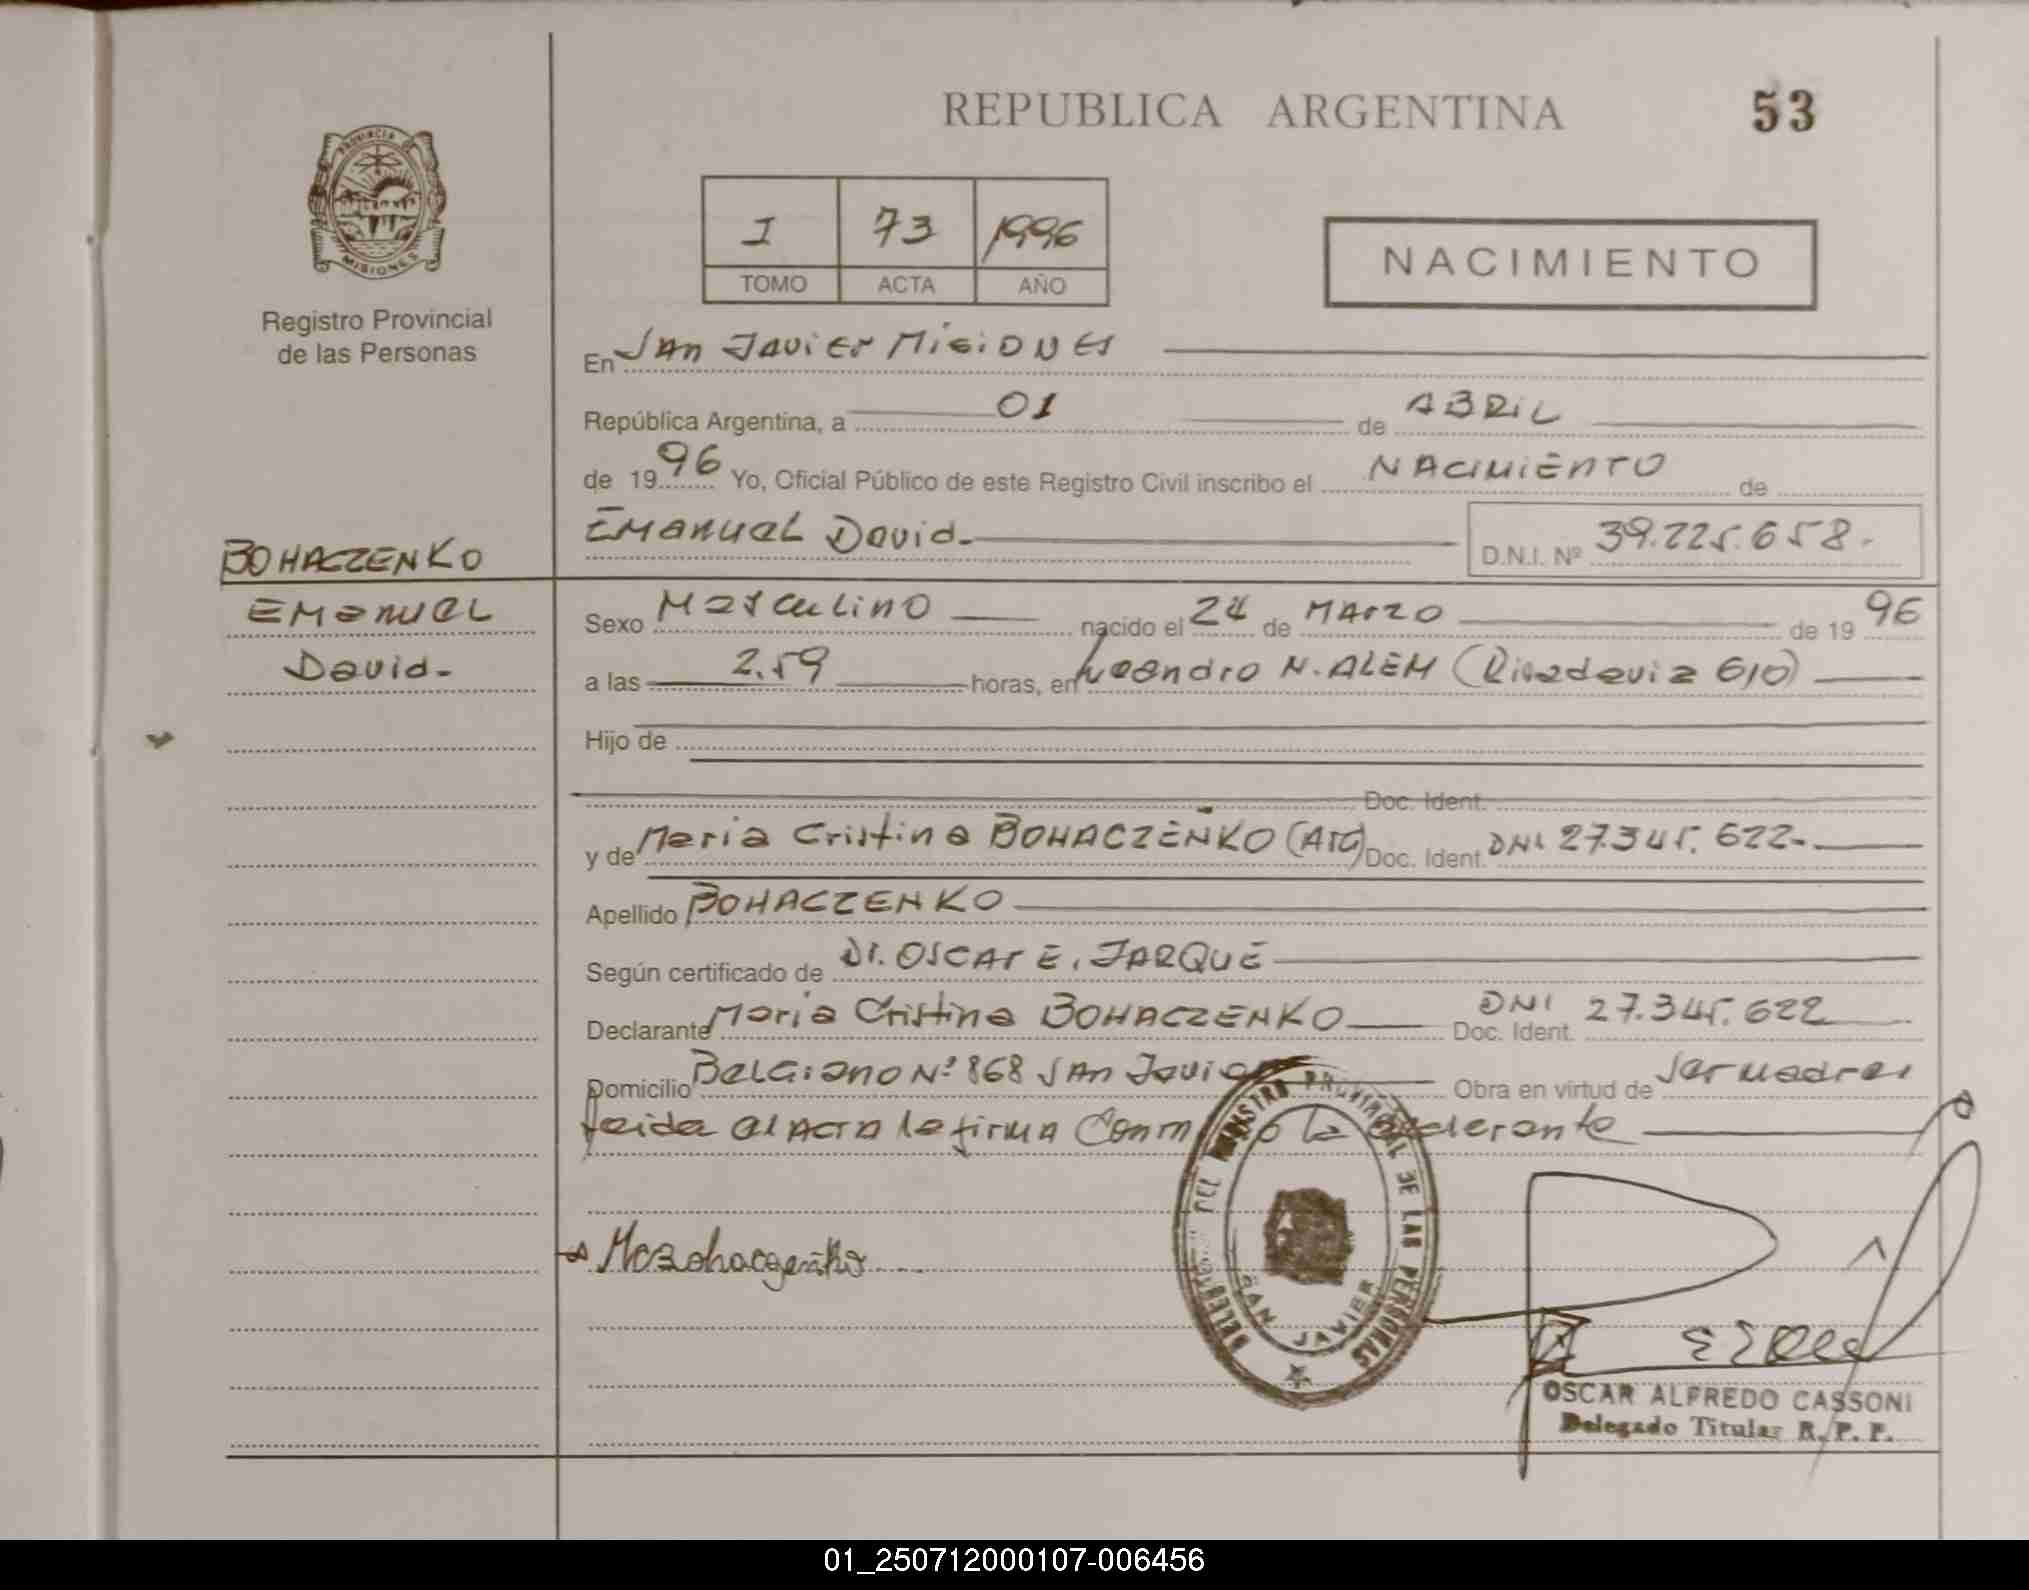 REPUBLICA ARGENTINA 53
PROVINCIA
MISIONES
Registro Provincial
de las Personas
I 73 1996
TOMO ACTA AÑO
NACIMIENTO
En San Javier Misiones
República Argentina, a 01 de ABRIL
de 1996 Yo, Oficial Público de este Registro Civil inscribo el NACIMIENTO de
Emanuel David.- D.N.I. Nº 39.225.658.-
BOHACZENKO
Emanuel
David.-
Sexo Masculino nacido el 24 de Marzo de 1996
a las 2.59 horas, en Leandro N. ALEM (Rivadavia 610)
Hijo de
Doc. Ident.
y de Maria Cristina BOHACZENKO (ARG) Doc. Ident. DNI 27.345.622.-
Apellido BOHACZENKO
Según certificado de Dr. OSCAR E. JARQUE
Declarante Maria Cristina BOHACZENKO Doc. Ident. DNI 27.345.622
Domicilio Belgrano Nº 868 San Javier Obra en virtud de ser madre
leida el ACTA la firma Conmigo la declarante
DELEGACION DEL REGISTRO PROVINCIAL DE LAS PERSONAS
SAN JAVIER
OSCAR ALFREDO CASSONI
Delegado Titular R. P. P.
01_250712000107-006456